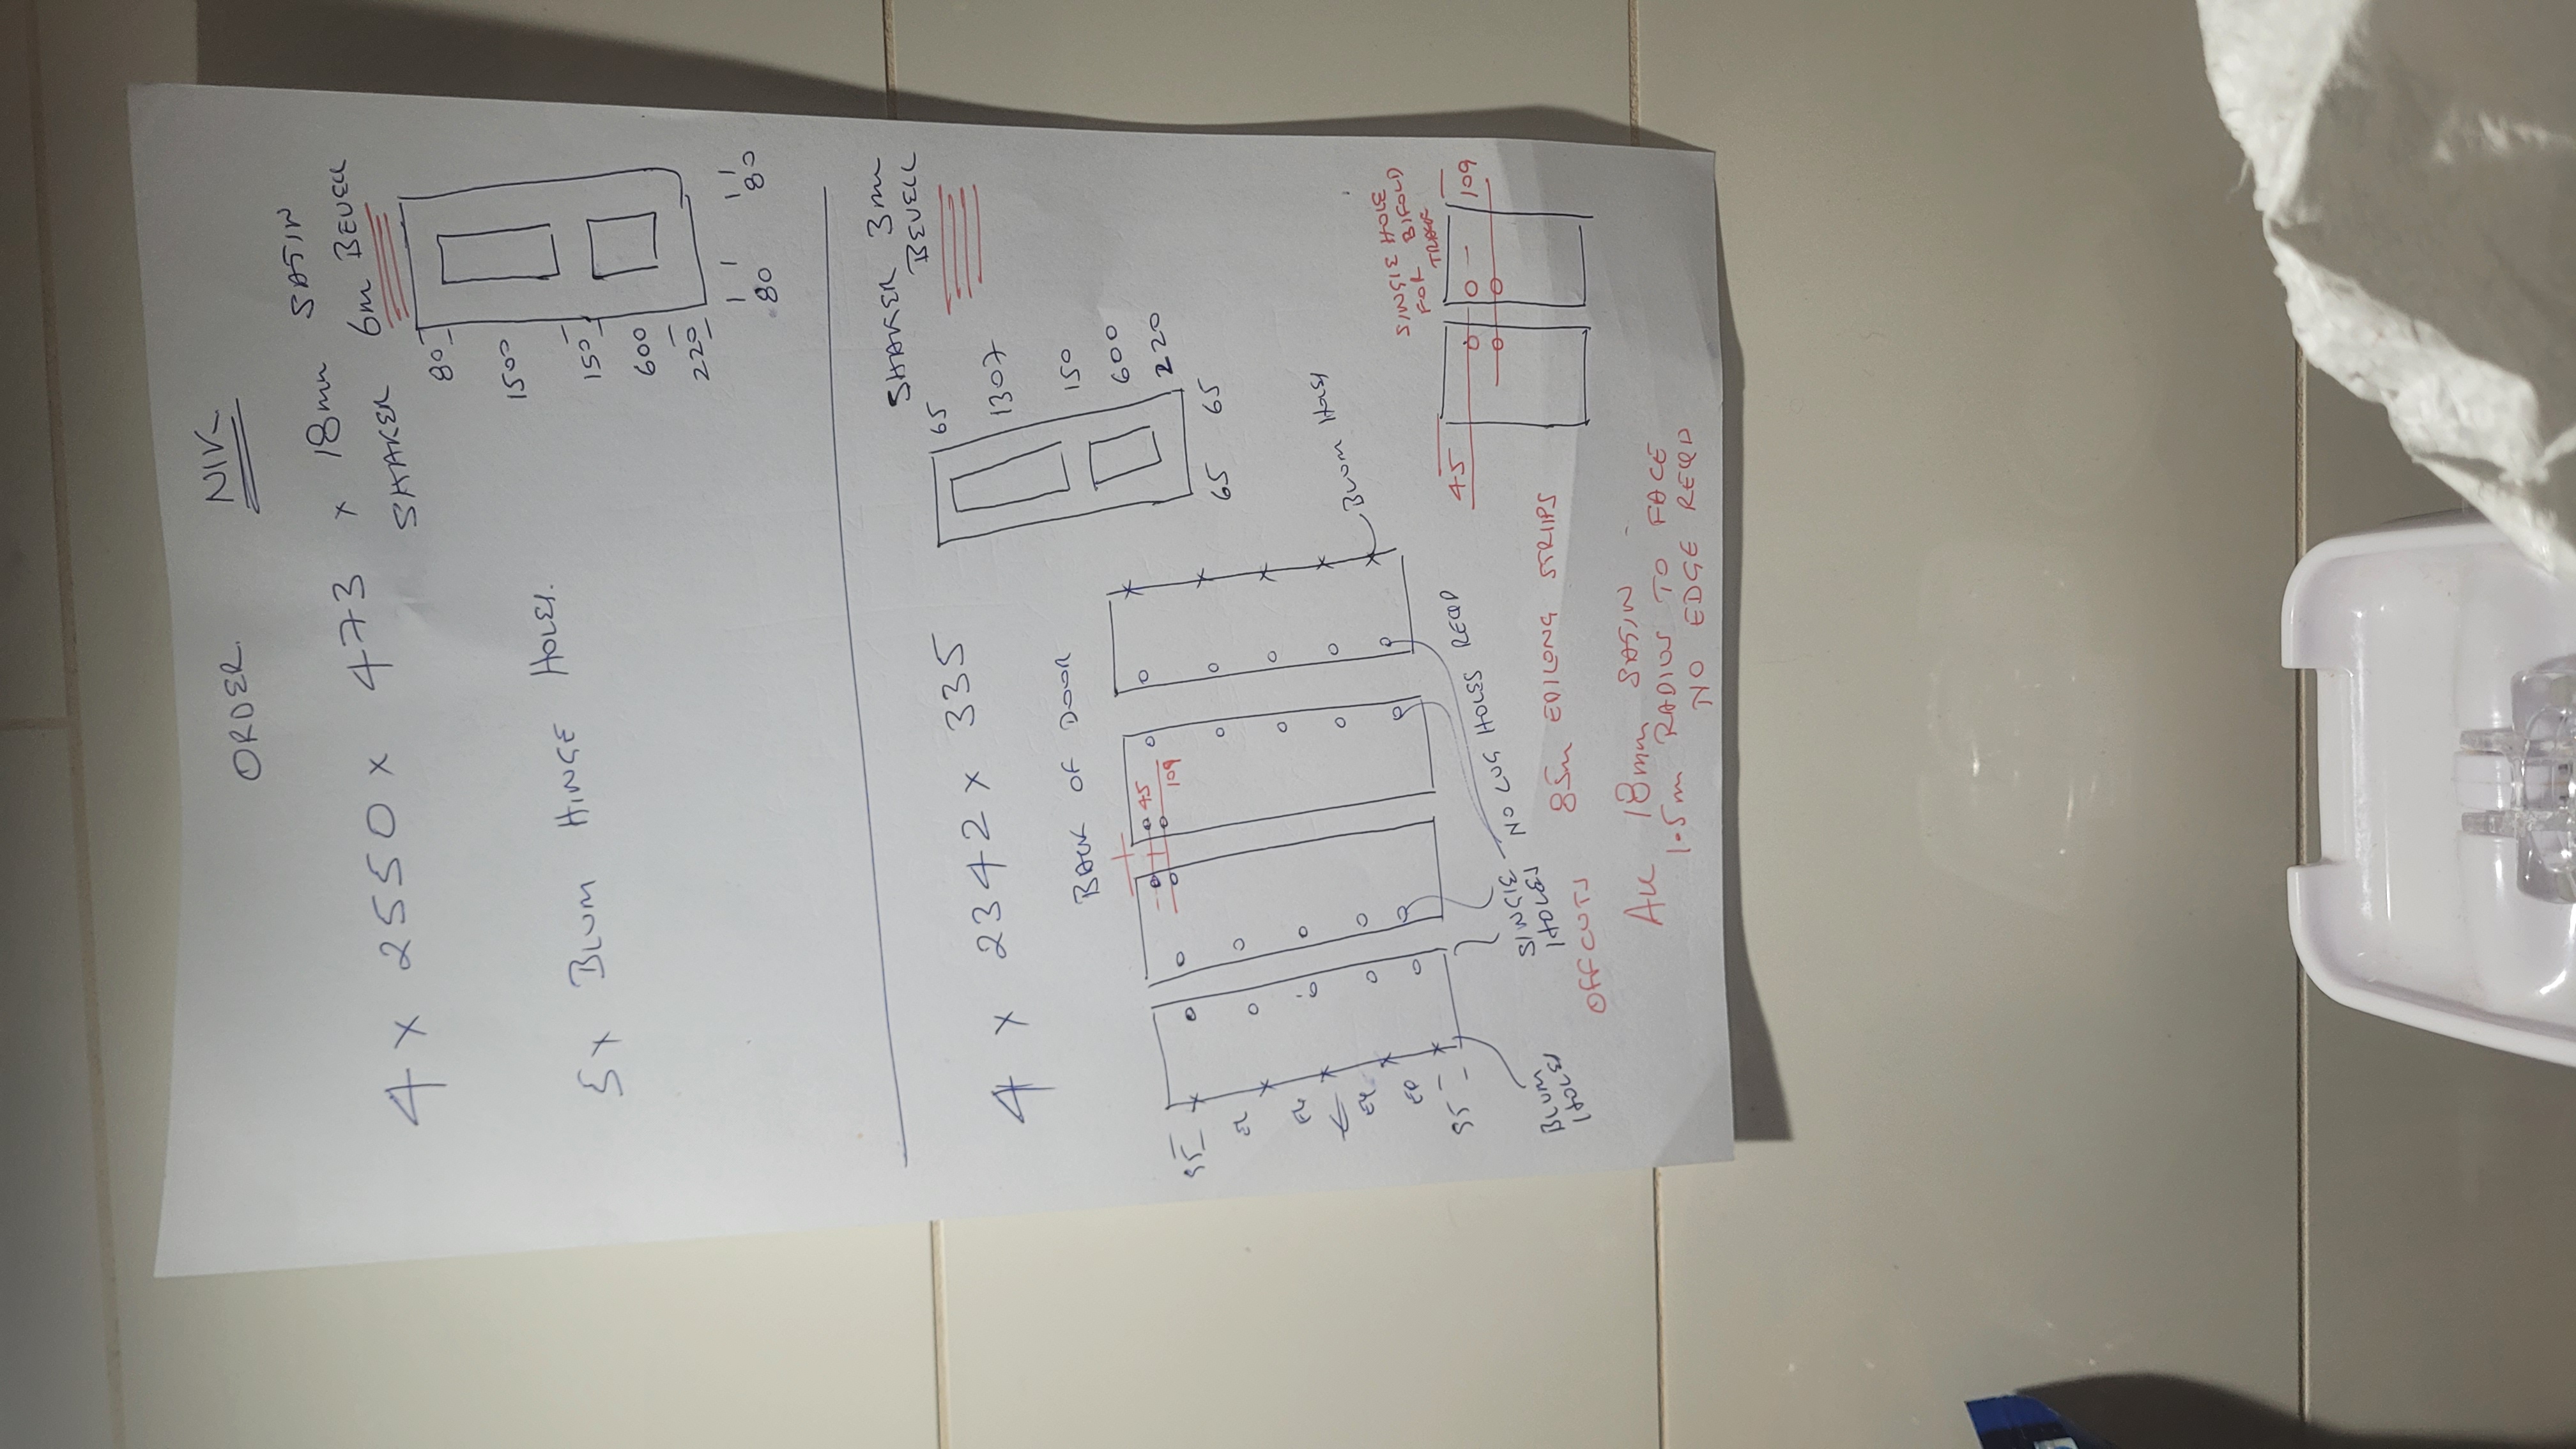 ORDER NIK
4 x 2550 x 473 x 18mm SATIN
SHAKER 6m BEVELL
80
1500
150
600
220
80 80
5x BLUM HINGE HOLES.
4 x 2342 x 335 SHAKER 3mm
BEVELL
65
1307
150
600
220
65 65
BACK OF DOOR
45
109
95
EQ
EQ
EQ
EQ
95
BLUM HOLES
BLUM
HOLES
SINGLE
HOLES
NO LUG HOLES REQD
SINGLE HOLE
FOR BIFOLD
TRACK
45
109
OFFCUTS 85m EDILONG STRIPS
ALL 18mm SATIN
1.5m RADIUS TO FACE
NO EDGE REQD